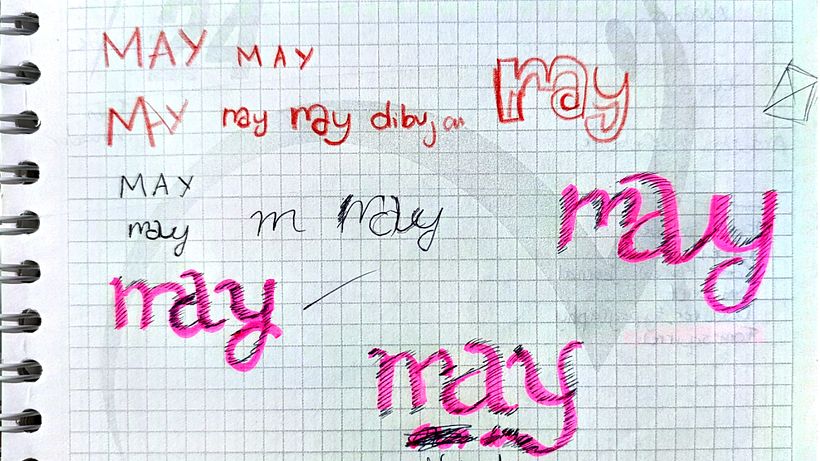 MAY MAY
may
MAY may may dibujan
MAY
may m may
may
may
may